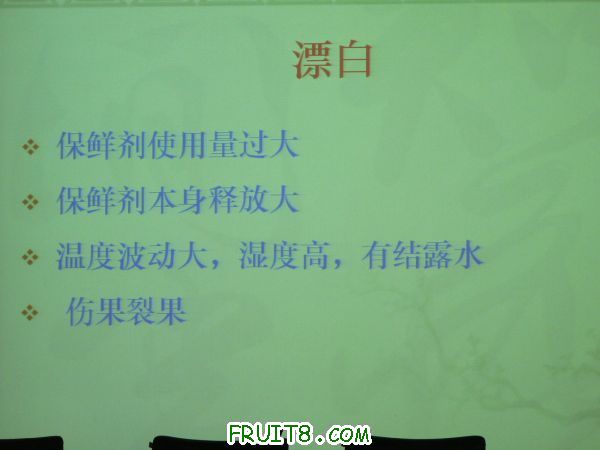 漂白
保鲜剂使用量过大
保鲜剂本身释放大
温度波动大，湿度高，有结露水
伤果裂果
FRUIT8.COM